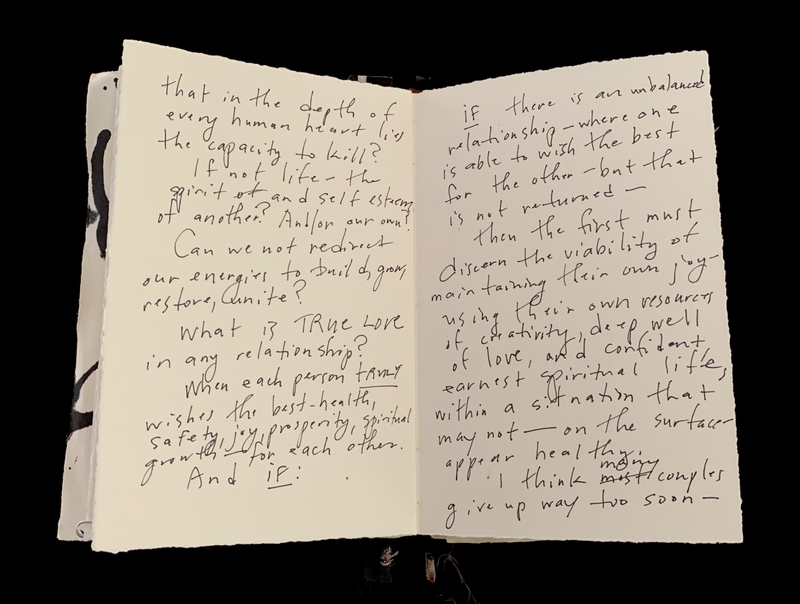 that in the depth of
every human heart lies
the capacity to kill?
If not life – the
spirit of and self esteem
of another? And/or our own?
Can we not redirect
our energies to build, grow,
restore, unite?
What is TRUE LOVE
in any relationship?
When each person TRULY
wishes the best – health,
safety, joy, prosperity, spiritual
growth – for each other.
And iF:
iF there is an unbalanced
relationship – where one
is able to wish the best
for the other – but that
is not returned –
then the first must
discern the viability of
maintaining their own joy –
using their own resources
of creativity, deep well
of love, and confident,
earnest spiritual life,
within a situation that
may not – on the surface –
appear healthy.
I think most many couples
give up way too soon –